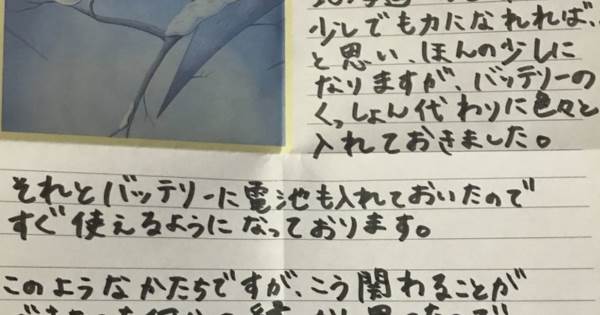 少しでも力になれれば、
と思い、ほんの少しに
なりますが、バッテリーの
くっしょん代わりに色々と
入れておきました。
それとバッテリーに電池も入れておいたので
すぐ使えるようになっております。
このようなかたちですが、こう関わることが